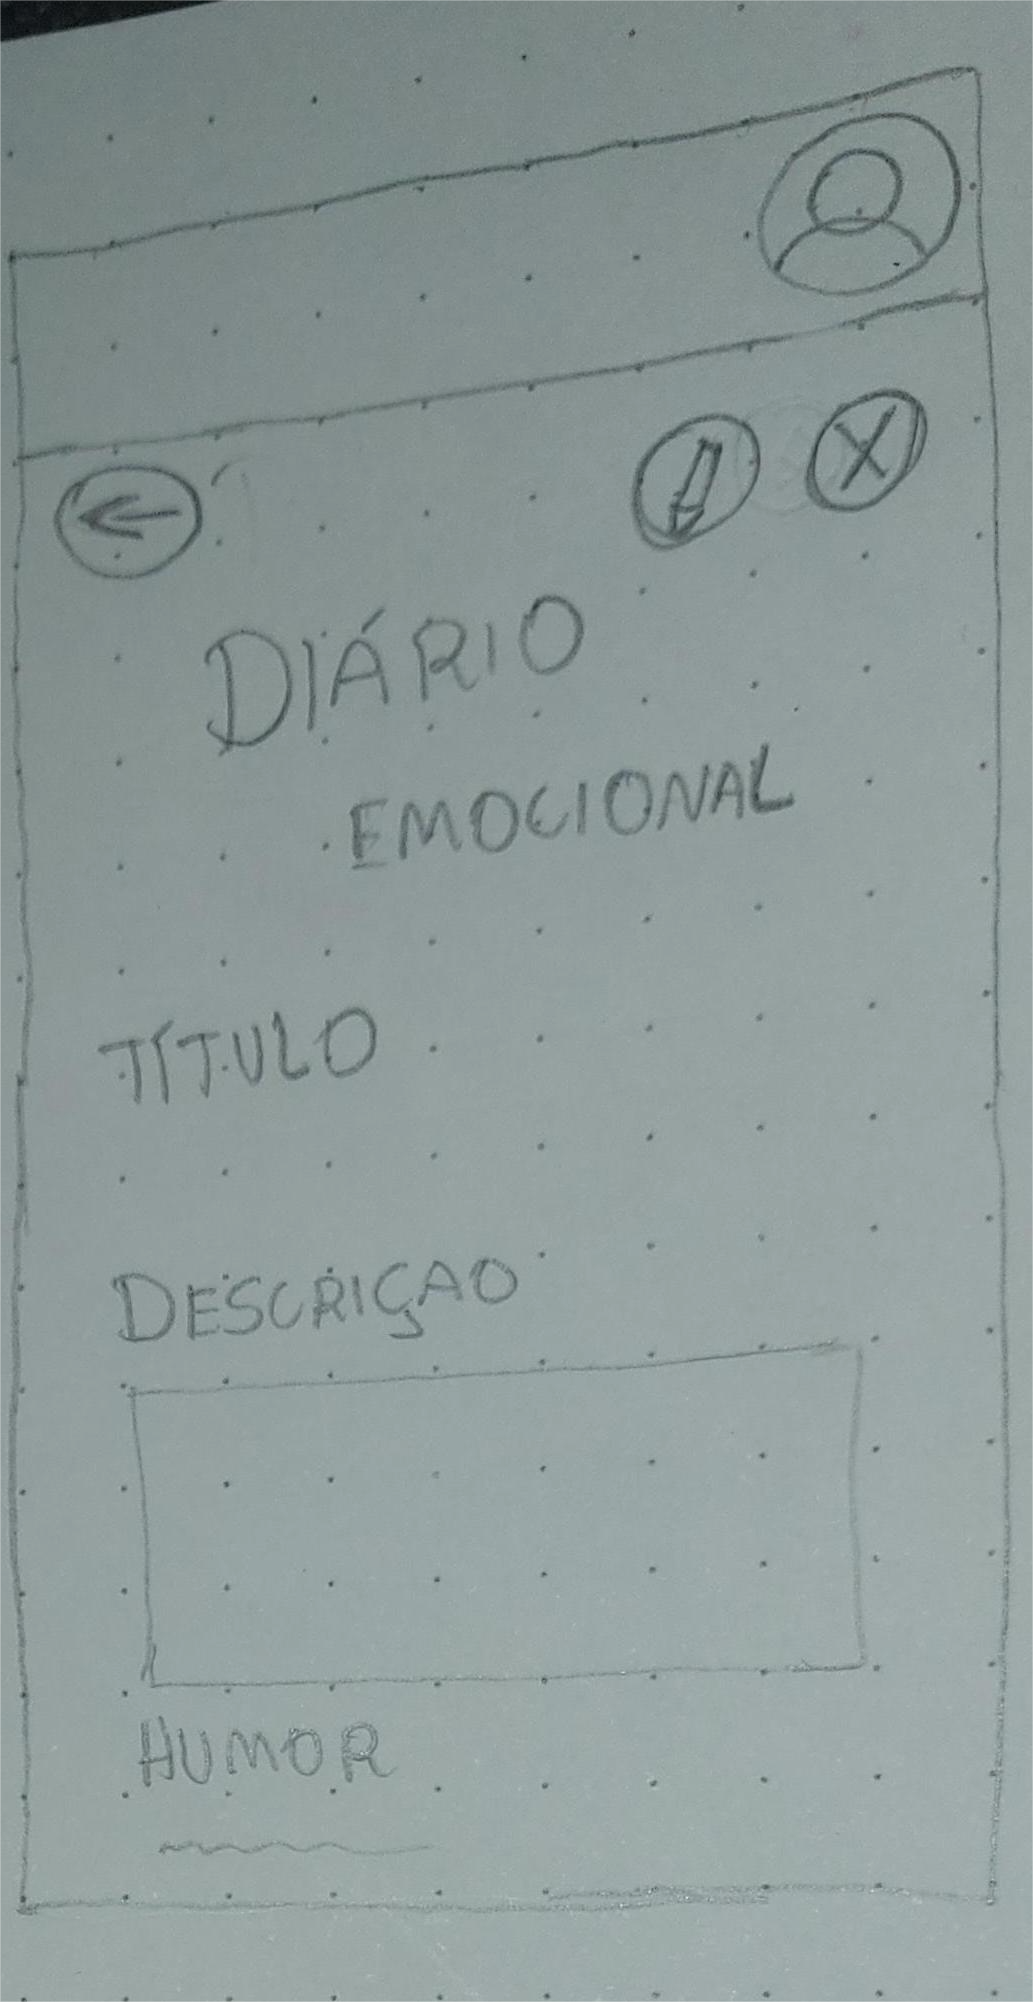 DIÁRIO
EMOCIONAL
TÍTULO
DESCRIÇAO
HUMOR